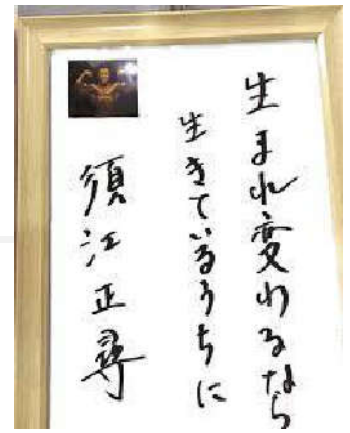 生まれ変わるなら
生きているうちに
須江正尋